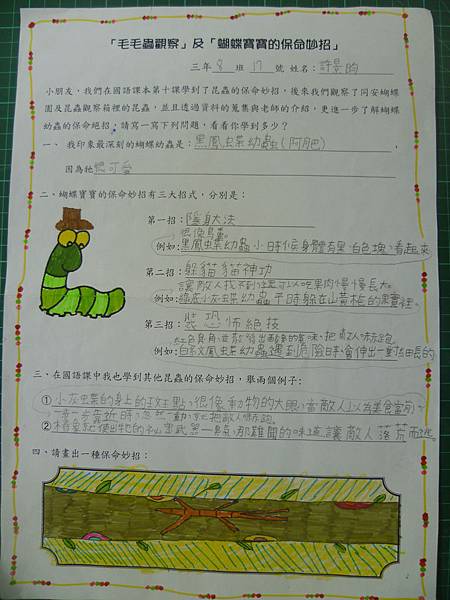 「毛毛蟲觀察」及「蝴蝶寶寶的保命妙招」
三年 8 班 17 號 姓名：許
小朋友，我們在國語課本第十課學到了昆蟲的保命妙招，後來我們觀察了同安蝴蝶
園及昆蟲觀察箱裡的昆蟲，並且透過資料的蒐集與老師的介紹，更進一步了解蝴蝶
幼蟲的保命絕招，請寫一寫下列問題，看看你學到多少？
一、 我印象最深刻的蝴蝶幼蟲是：黑鳳蝶幼蟲(阿肥)，
因為牠很可愛
二、蝴蝶寶寶的保命妙招有三大招式，分別是：
第一招：隱身大法
很像鳥糞。
例如：黑鳳蝶幼蟲小時候身體有黑、白色塊，看起來
第二招：躲貓貓神功
讓敵人找不到，還可以吃果肉慢慢長大。
例如：綠底小灰蝶幼蟲平時躲在山黃梔的果實裡，
第三招：裝恐怖絕技
紅色臭角，並散發出酸酸的氣味，把敵人嚇跑。
例如：白紋鳳蝶幼蟲遇到危險時，會伸出一對長長的
三、在國語課中我也學到其他昆蟲的保命妙招，舉兩個例子：
①小灰蝶的身上的斑點，很像動物的大眼，當敵人以為美食當前，
一步一步靠近時，忽然一動，就把敵人嚇跑。
②椿象祭出牠的祕密武器—臭，那難聞的味道，讓敵人落荒而逃。
四、請畫出一種保命妙招：